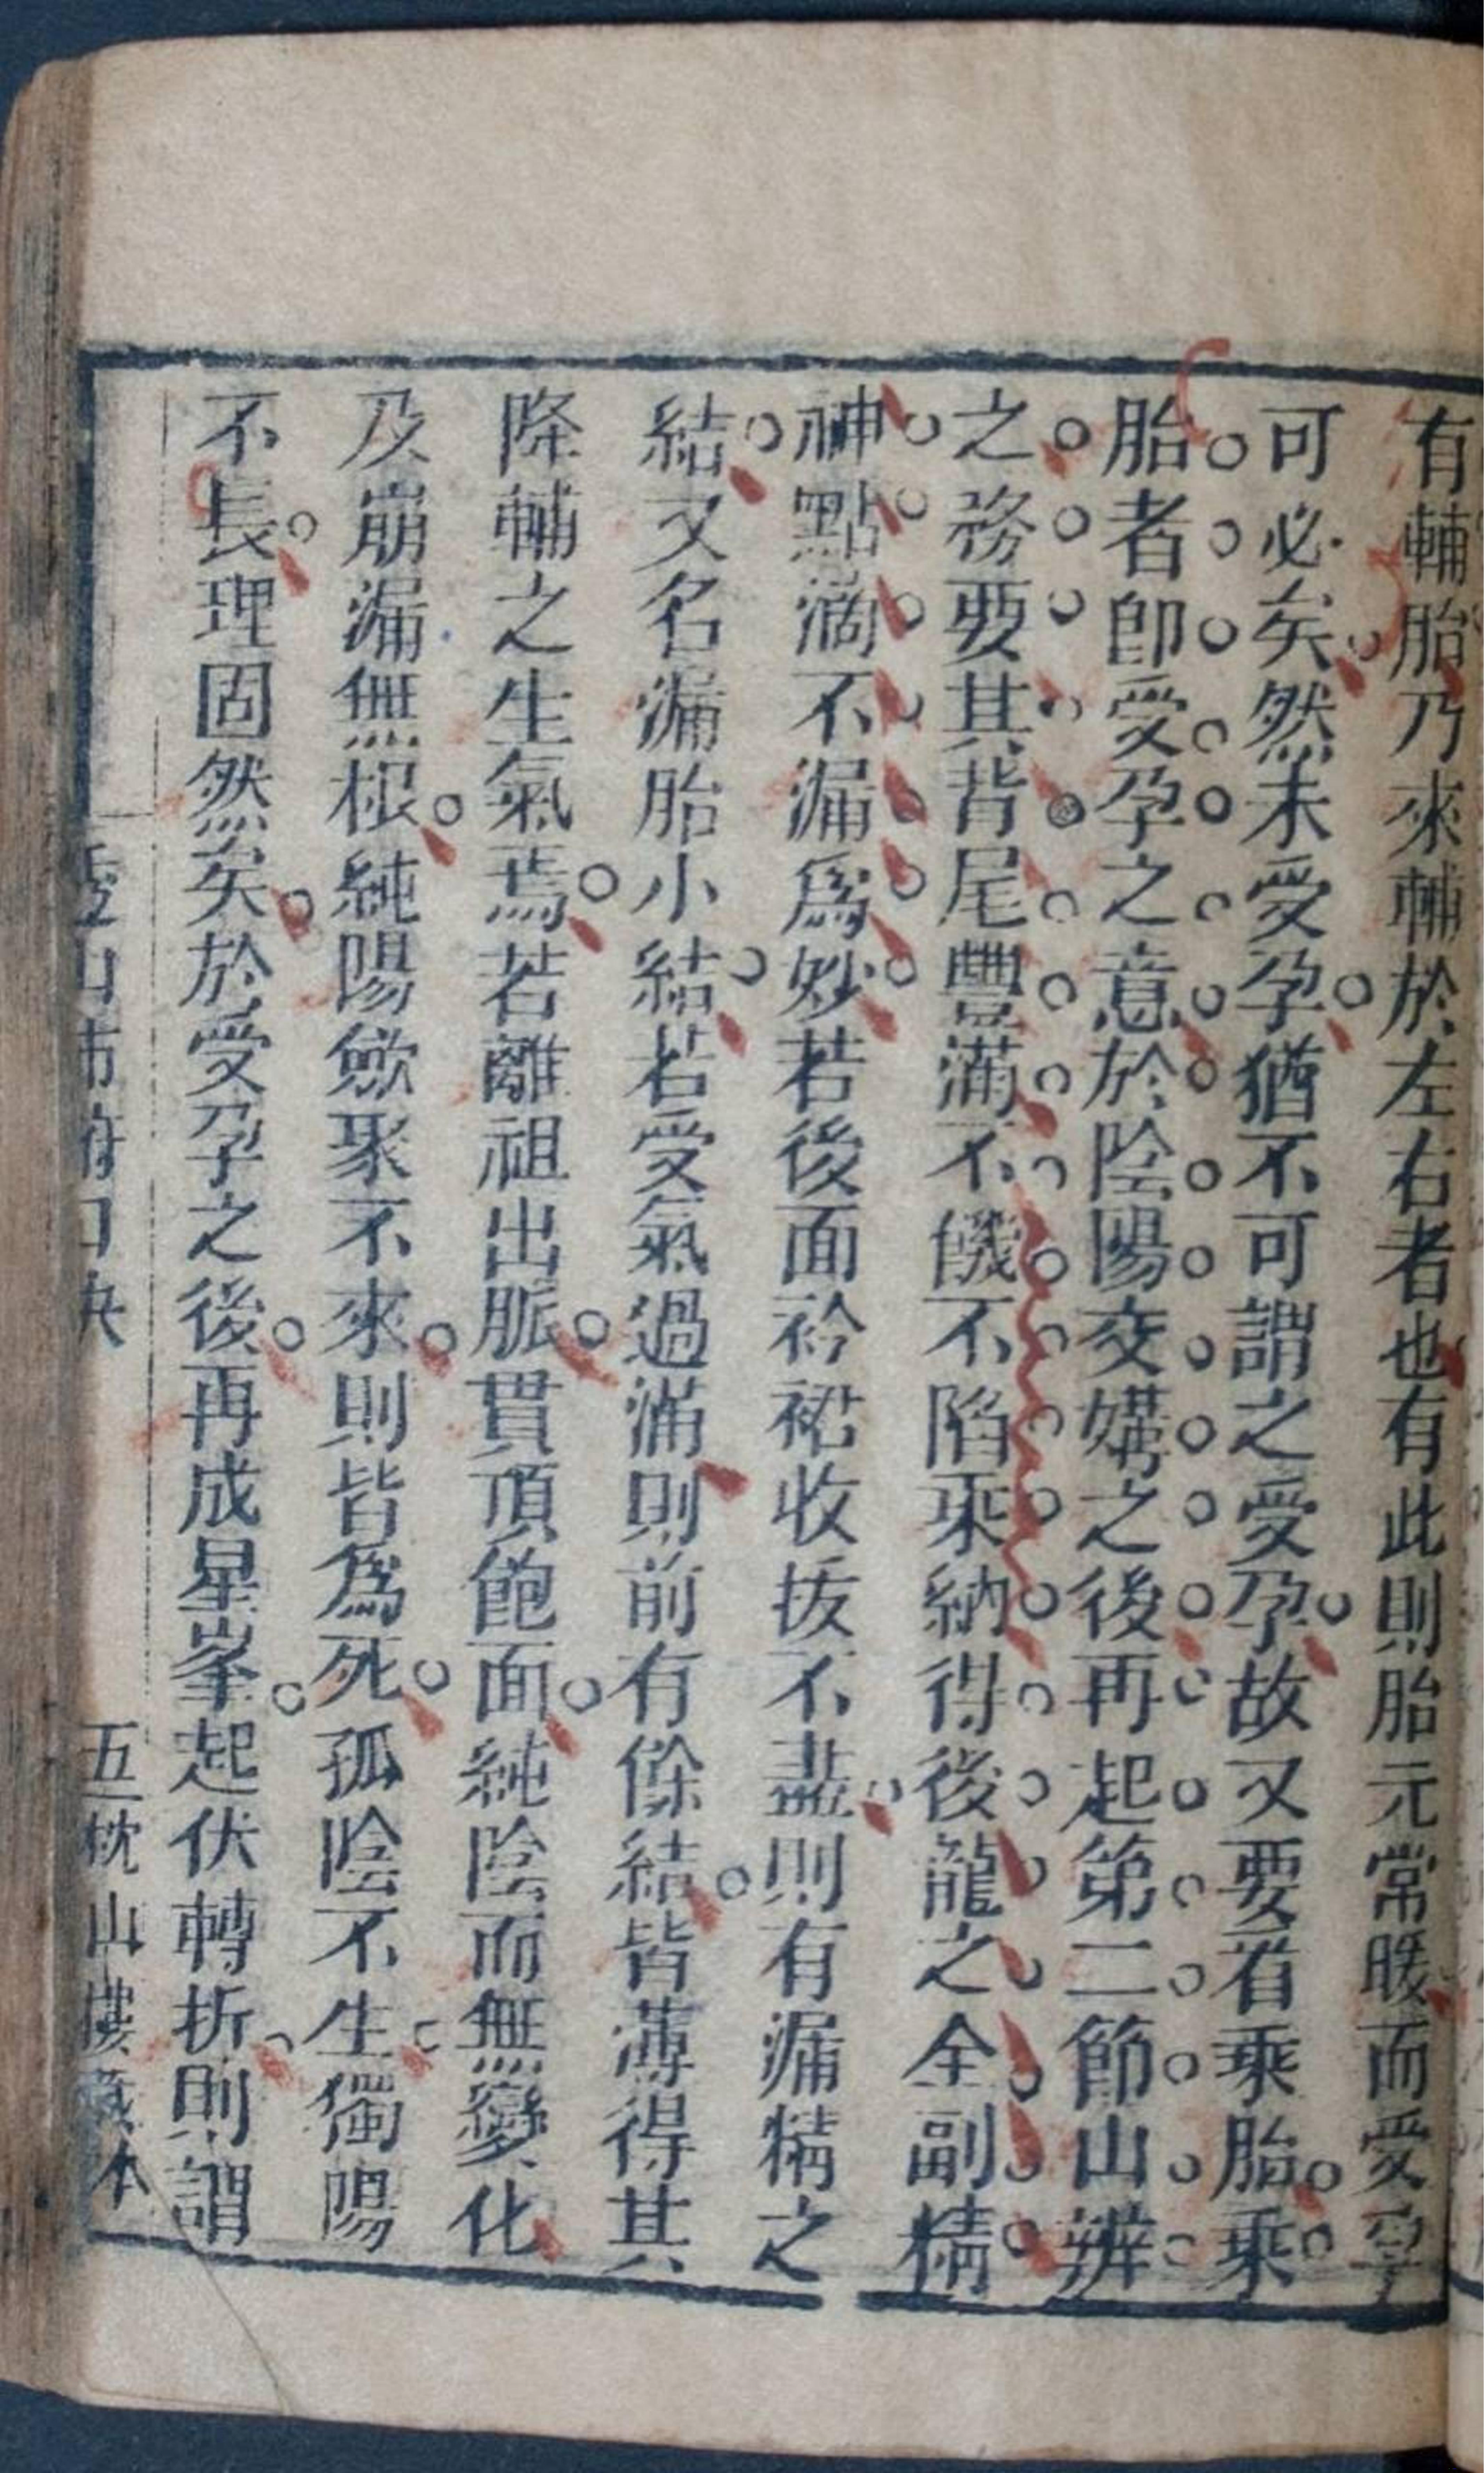 有輔胎乃來輔於左右者也有此則胎元常暖而受孕
可必矣然未受孕猶不可謂之受孕故又要看乘胎乘
胎者卽受孕之意於陰陽交媾之後再起第二節山辨
之務要其背尾豐滿不饑不陷乘納得後龍之全副精
神點滴不漏爲妙若後面衿裙收拔不盡則有漏精之
結又名漏胎小結若受氣過滿則前有餘結皆薄得其
降輔之生氣焉若離祖出脈貫頂飽面純陰而無變化
及崩漏無根純陽歛聚不來則皆爲死孤陰不生獨陽
不長理固然矣於受孕之後再成星峯起伏轉折則謂
山 口
五 枕山樓 本